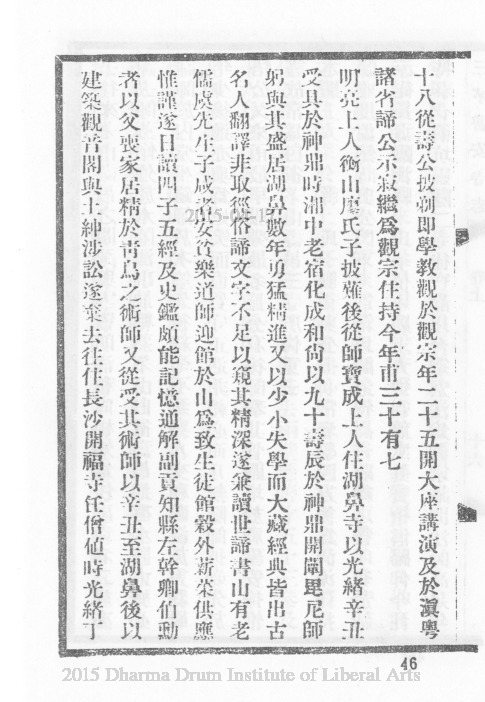 十八從壽公披剃即學教觀於觀宗年二十五開大座講演及於滇粵
諸省諦公示寂繼爲觀宗住持今年甫三十有七
明亮上人衡山廖氏子披薙後從師寶成上人住湖鼻寺以光緒辛丑
受具於神鼎時湘中老宿化成和尙以九十壽辰於神鼎開闡毘尼師
躬與其盛居湖鼻數年勇猛精進又以少小失學而大藏經典皆出古
名人翻譯非取徑俗諦文字不足以窺其精深遂兼讀世諦書山有老
儒虞先生子咸者安貧樂道師迎館於山爲致生徒館穀外薪菜供應
惟謹遂日讀四子五經及史鑑頗能記憶通解副貢知縣左幹卿伯勳
者以父喪家居精於靑烏之術師又從受其術師以辛丑至湖鼻後以
建築觀音閣與士紳涉訟遂棄去往住長沙開福寺任僧値時光緒丁
46
2015-04-1
2015 Dharma Drum Institute of Liberal Arts